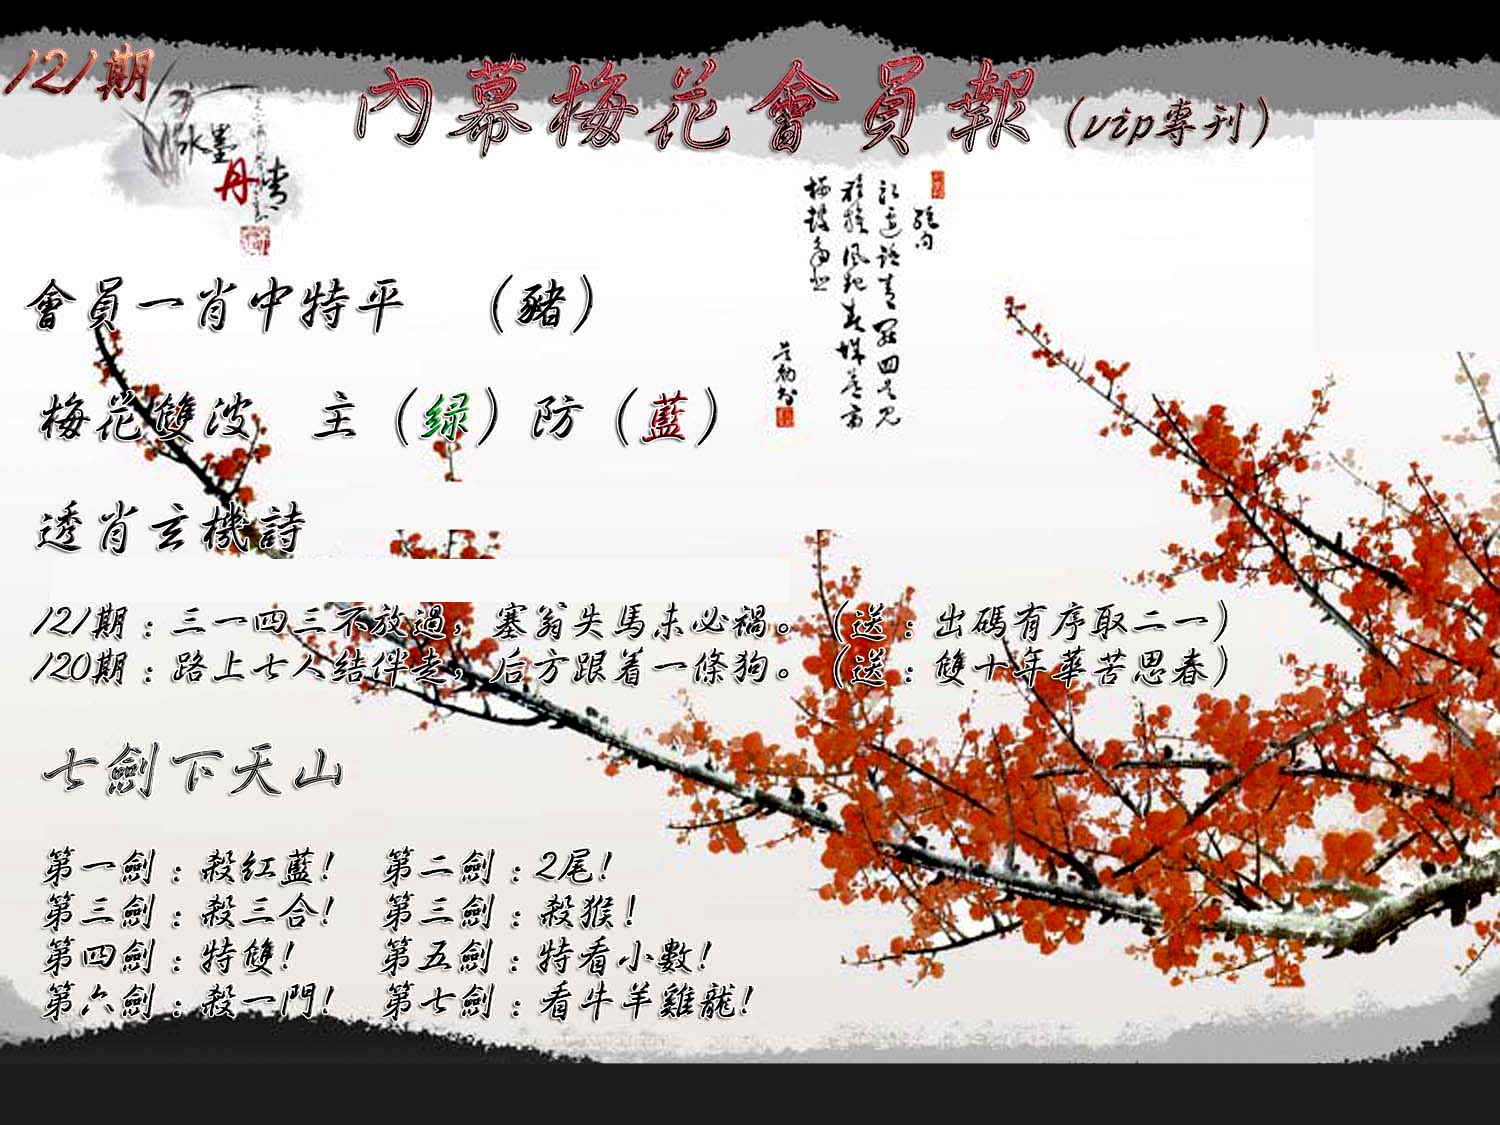 121期
內幕梅花會員報(vip專刊)
水墨
丹青
絕句
會員一肖中特平 (豬)
梅花雙波 主(绿)防(藍)
透肖玄機詩
121期:三一四三不放過,塞翁失馬未必禍。(送:出碼有序取二一)
120期:路上七人结伴走,后方跟着一條狗。(送:雙十年華苦思春)
七劍下天山
第一劍:殺紅藍! 第二劍:2尾!
第三劍:殺三合! 第三劍:殺猴!
第四劍:特雙! 第五劍:特看小數!
第六劍:殺一門! 第七劍:看牛羊雞龍!